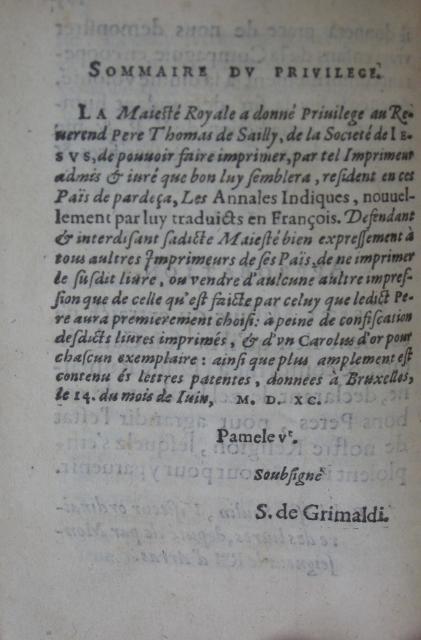 SOMMAIRE DV PRIVILEGE.
LA Maiesté Royale a donné Priuilege au Re-
uerend Pere Thomas de Sailly, de la Societé de IE-
SVS, de pouuoir faire imprimer, par tel Imprimeur
admis & iuré que bon luy semblera, resident en ces
Païs de pardeça, Les Annales Indiques, nouuel-
lement par luy traduicts en François. Defendant
& interdisant sadicte Maiesté bien expressement à
tous aultres Imprimeurs de ses Païs, de ne imprimer
le susdit liure, ou vendre d'aulcune aultre impres-
sion que de celle qu'est faicte par celuy que ledict Pe-
re aura premierement choisi: à peine de confiscation
desdicts liures imprimés, & d'vn Carolus d'or pour
chascun exemplaire: ainsi que plus amplement est
contenu és lettres patentes, données à Bruxelles,
le 14. du mois de Iuin, M. D. XC.
Pamele vt.
Soubsigné
S. de Grimaldi.